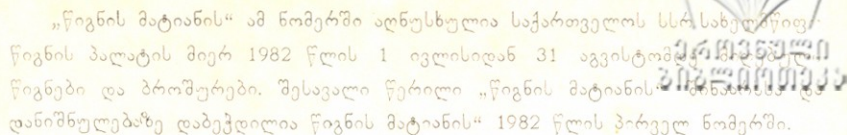 „წიგნის მატიანის“ ამ ნომერში აღნუსხულია საქართველოს სსრ სახელმწიფო
წიგნის პალატის მიერ 1982 წლის 1 ივლისიდან 31 აგვისტომდე
წიგნები და ბროშურები. შესავალი წერილი „წიგნის მატიანის“ და
დანიშნულებაზე დაბეჭდილია წიგნის მატიანის“ 1982 წლის პირველ ნომერში.
ეროვნული
ბიბლიოთეკა